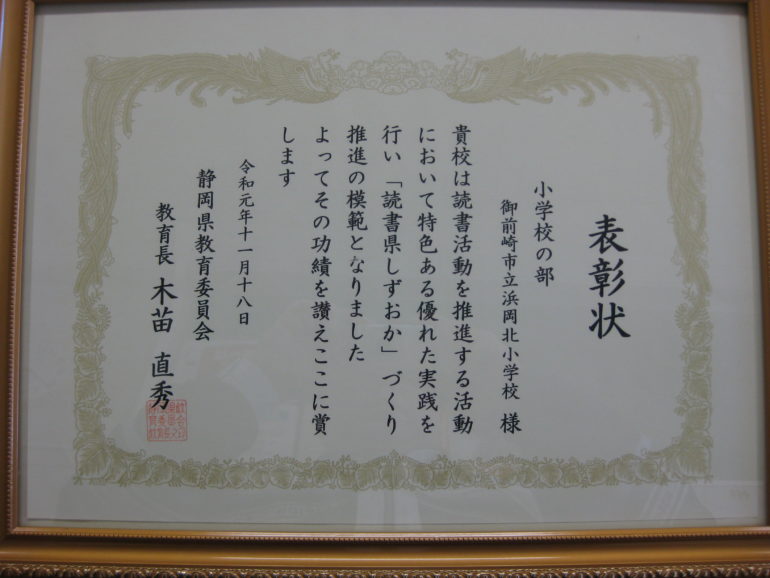 表彰状
小学校の部
御前崎市立浜岡北小学校 様
貴校は読書活動を推進する活動
において特色ある優れた実践を
行い「読書県しずおか」づくり
推進の模範となりました
よってその功績を讃えここに賞
します
令和元年十一月十八日
静岡県教育委員会
教育長 木苗 直秀